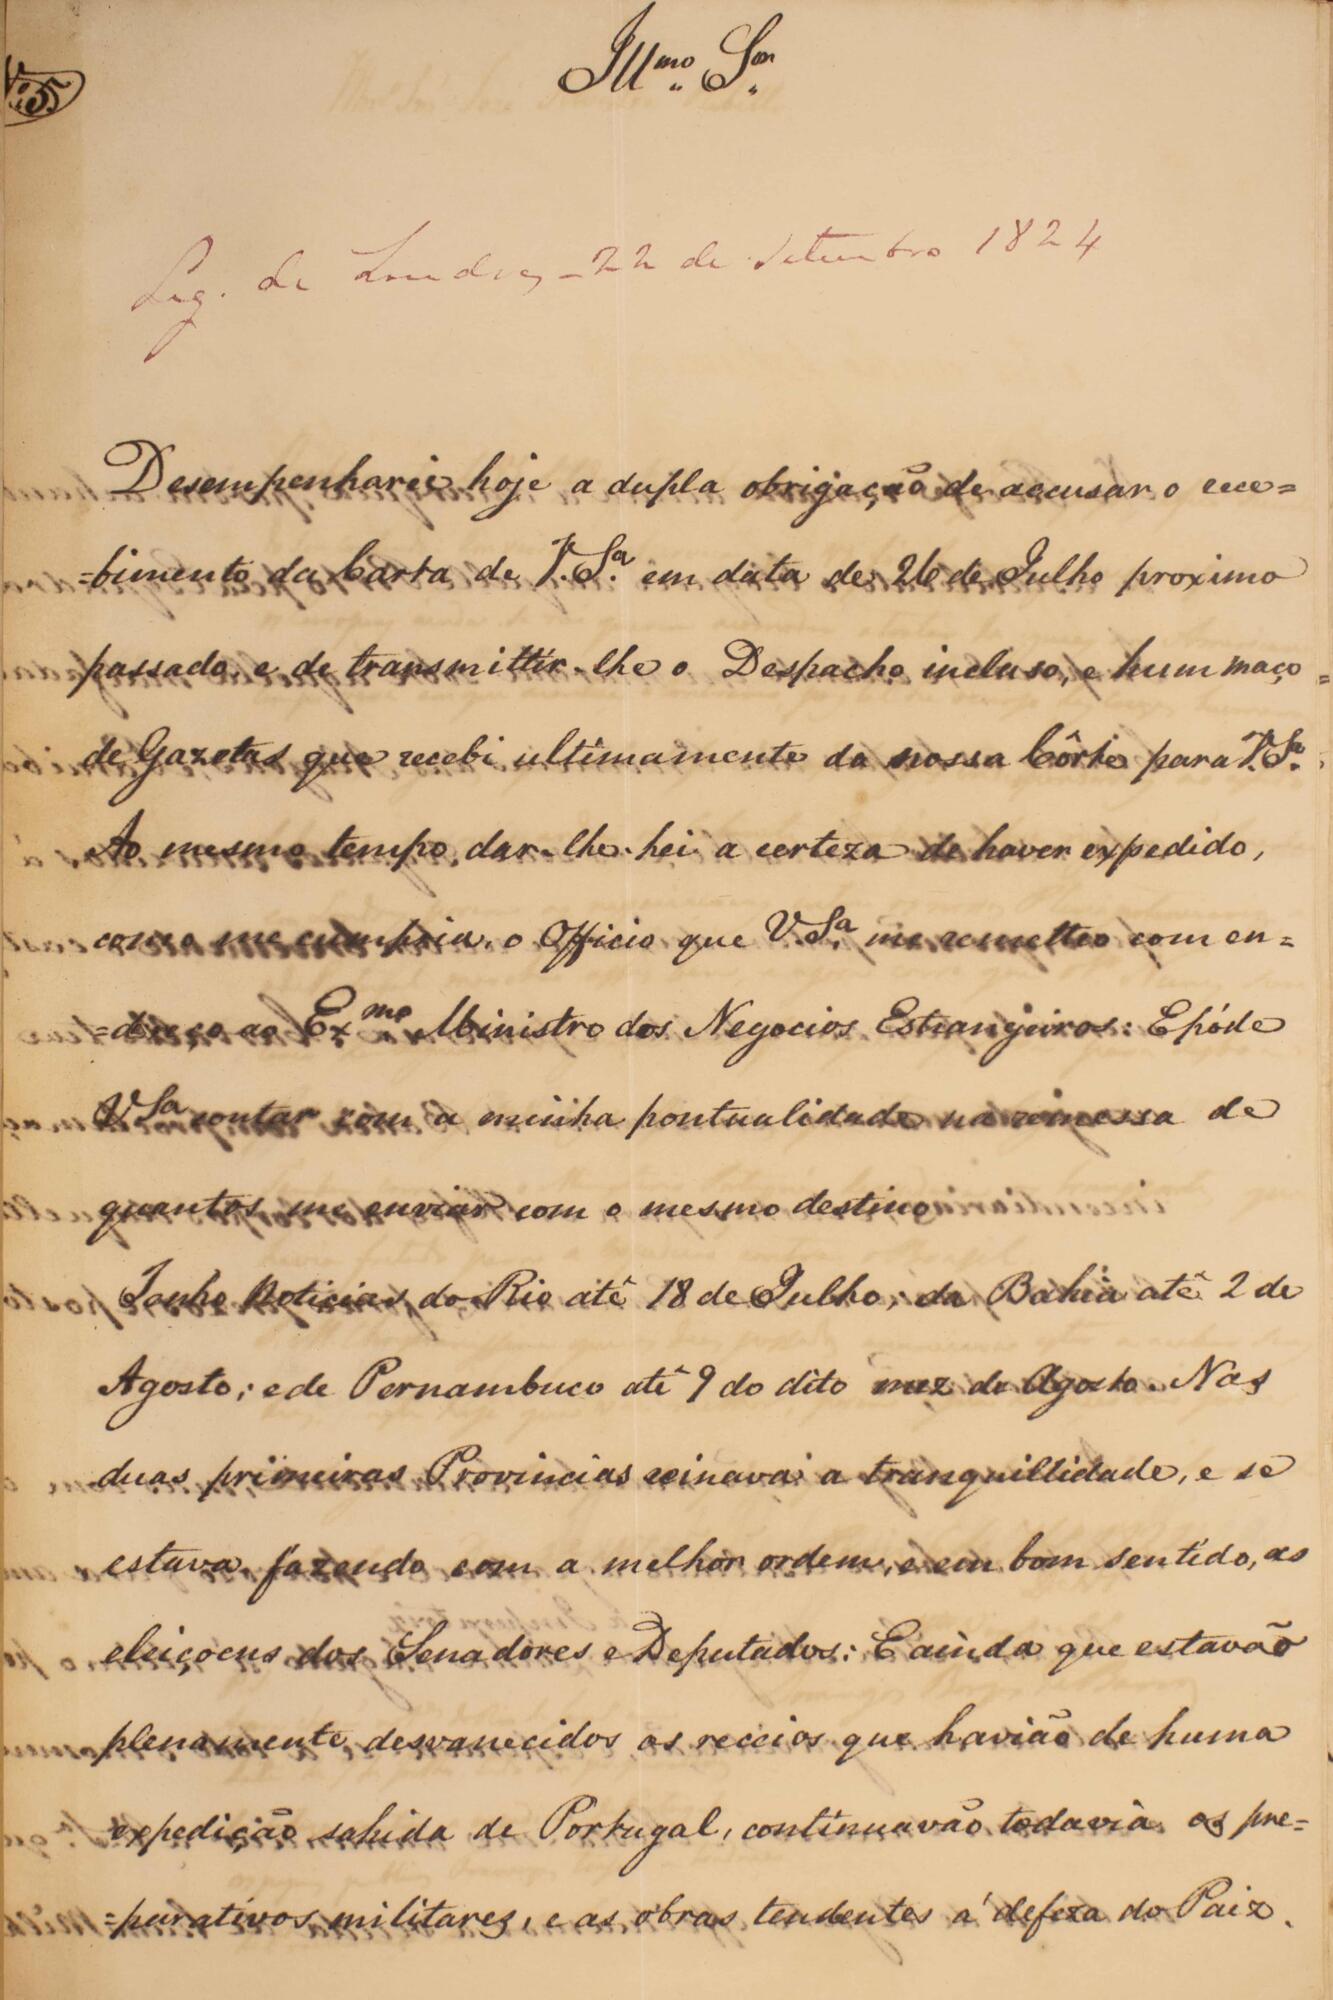 Nº 5
Illmo. Snr.
Leg. de Londres – 22 de Setembro 1824
Desempenharei hoje a dupla obrigação de accusar o rece=
=bimento da Carta de V. Sa. em data de 26 de Julho proximo
passado, e de transmittir-lhe o Despacho incluso, e hum maço
de Gazetas que recebi ultimamente da nossa Côrte para V. Sa.
Ao mesmo tempo dar-lhe-hei a certeza de haver expedido,
como me cumpria, o Officio que V. Sa. me remetteo com en=
=dreço ao Exmo Ministro dos Negocios Estrangeiros: E póde
V Sa contar com a minha pontualidade na remessa de
quantos me enviar com o mesmo destino
Tenho Noticias do Rio atê 18 de Julho; da Bahia atê 2 de
Agosto; e de Pernambuco atê 9 do dito mez de Agosto. Nas
duas primeiras Provincias reinava a tranquillidade, e se
estava fazendo com a melhor ordem, e em bom sentido, as
eleiçoens dos Senadores e Deputados: E ainda que estavão
plenamente desvanecidos os receios que havião de huma
expedição sahida de Portugal, continuavão todavia os pre=
=parativos militares, e as obras tendentes á defeza do Paiz.